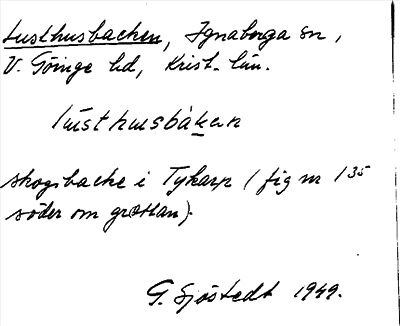 Lusthusbacken, Ignaberga sn,
V. Göinge hd, Krist. län.
lústhusbàkən
skogsbacke i Tykarp (fig nr 135
söder om grottan).
G. Sjöstedt 1949.